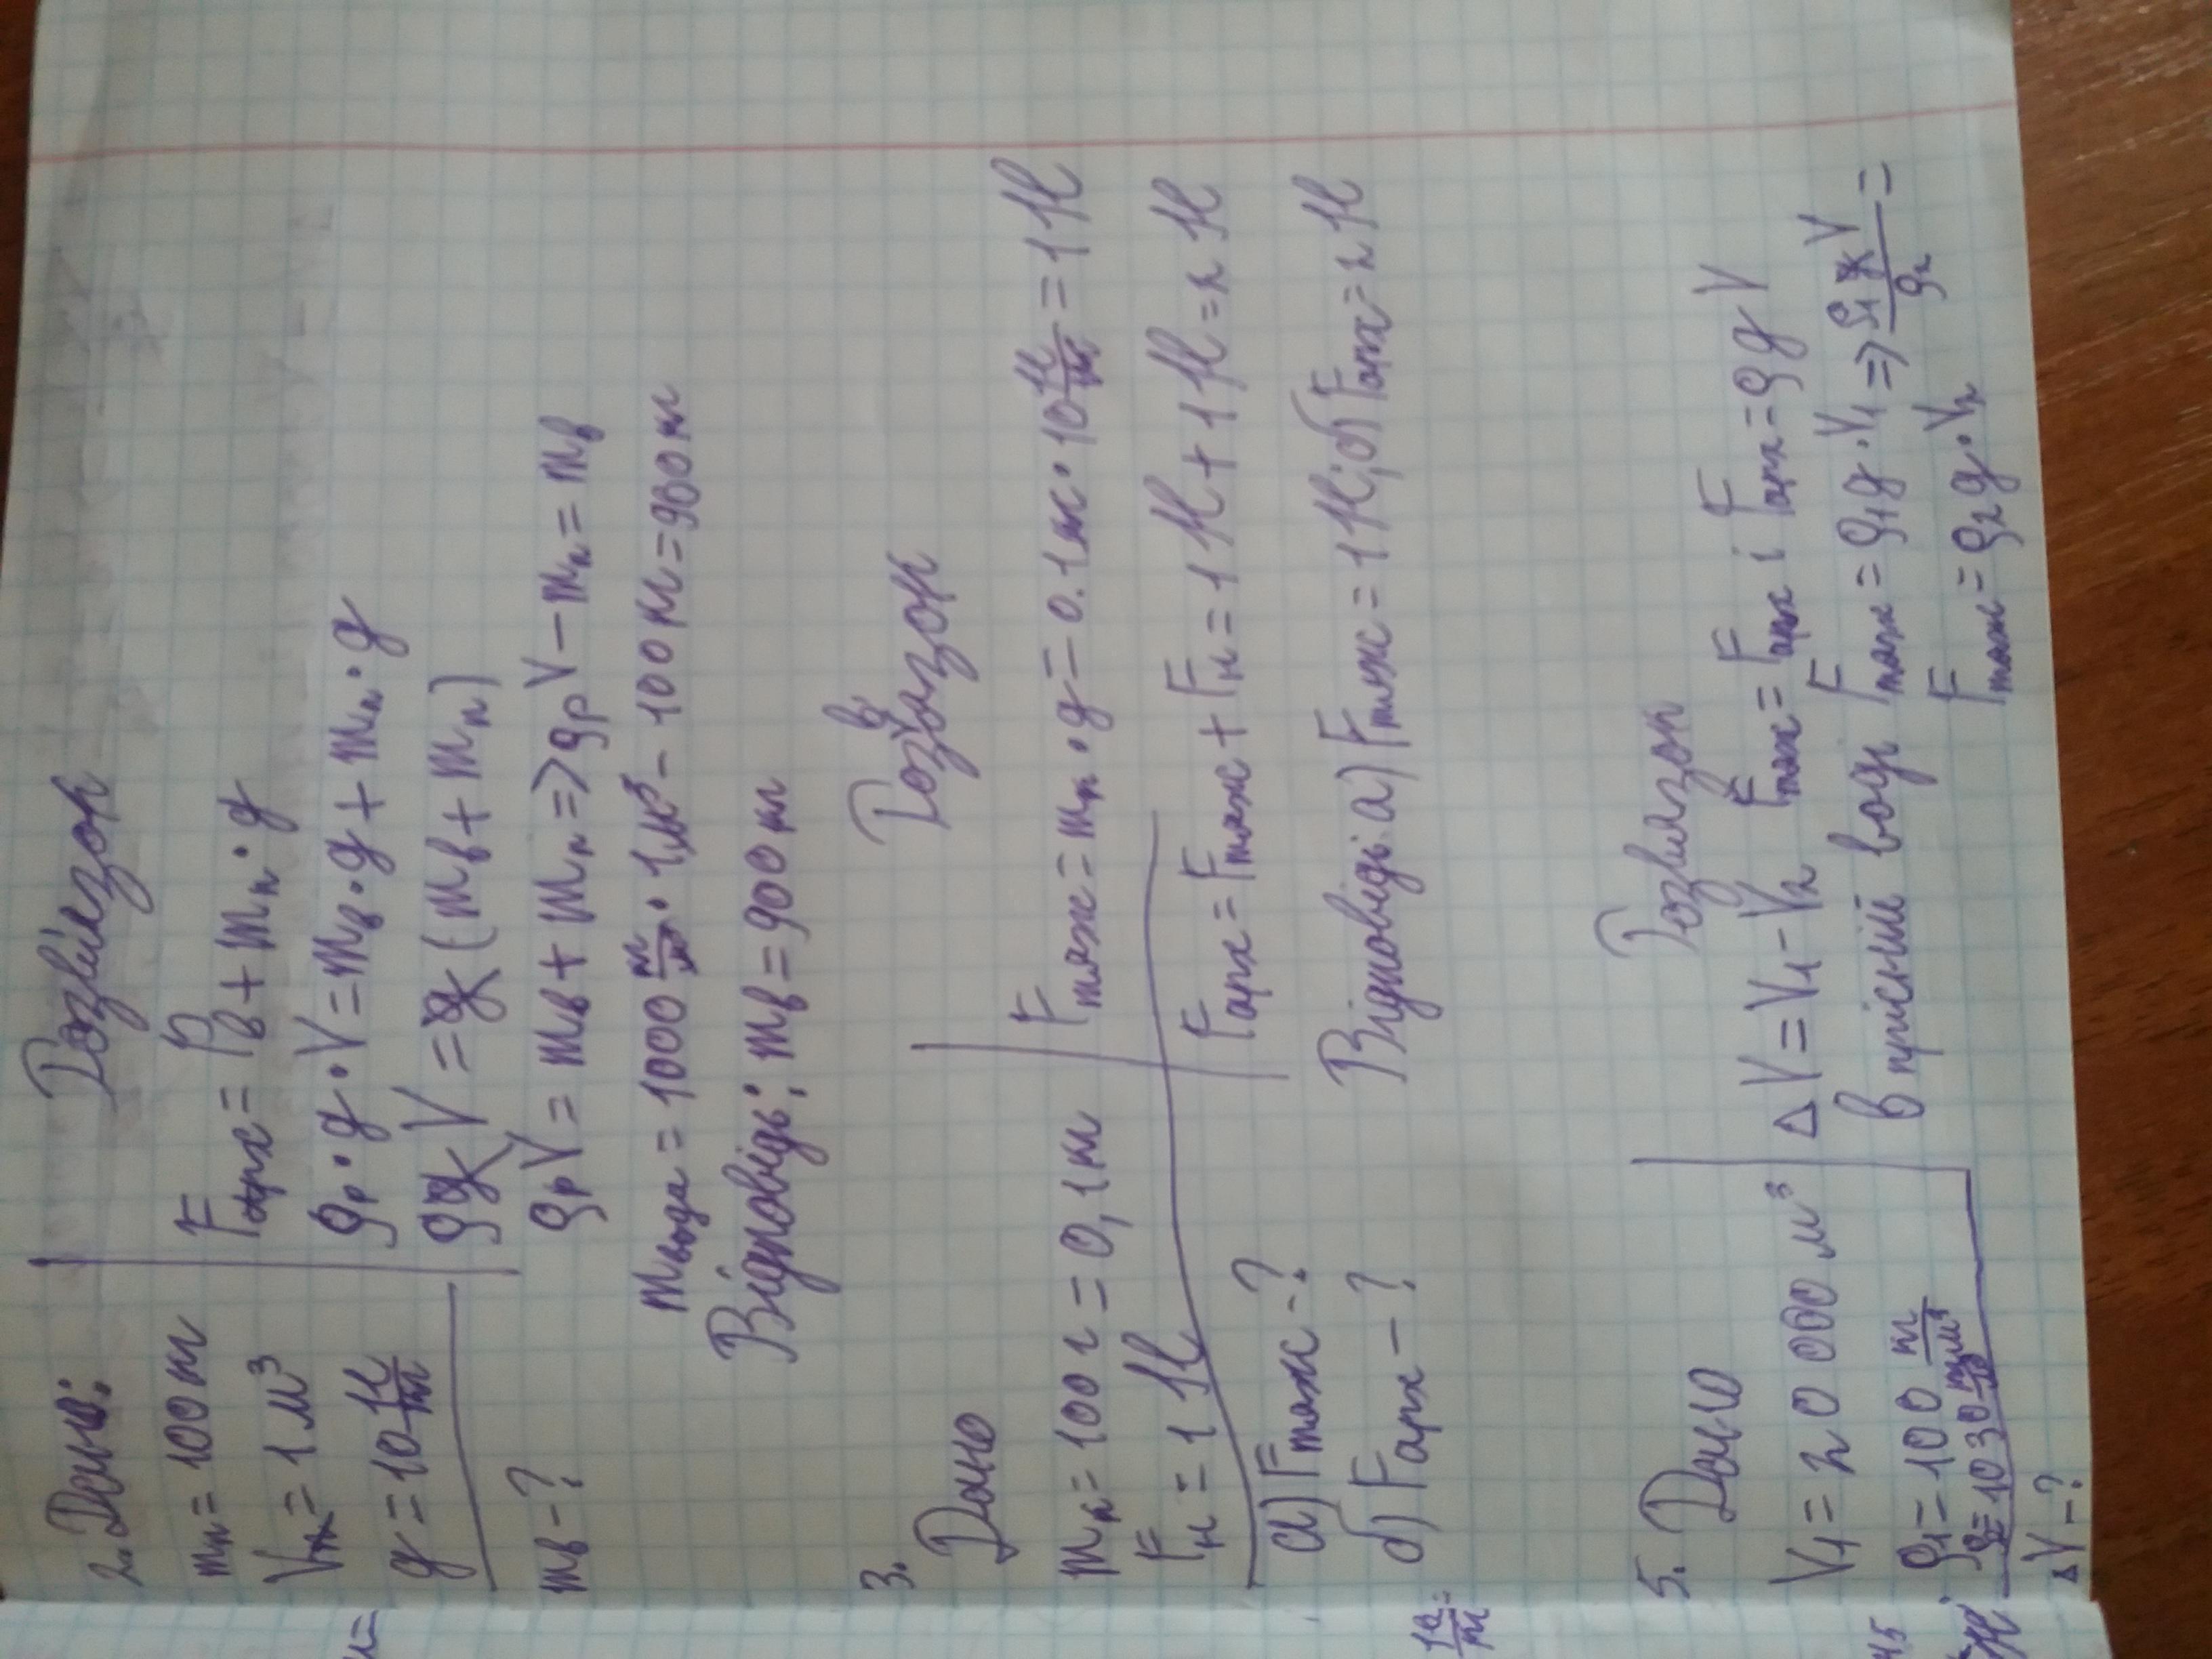 2. Дено:
mп = 100 кг
Vп = 1 м³
g = 10 Н/кг
mв - ?
Розвіязок
Fарх = Pв + mп · g
ρр · g · V = mв · g + mп · g
ρgV = g(mв + mп)
ρрV = mв + mп => ρрV - mп = mв
mвода = 1000 кг/м³ · 1м³ - 100 кг = 900 кг
Відповідь: mв = 900 кг
3.
Дано
mк = 100 г = 0,1 кг
Fн = 1 Н
а) Fтяж - ?
б) Fарх - ?
Розвязок
Fтяж = mк · g = 0.1 кг · 10 Н/кг = 1 Н
Fарх = Fтяж + Fн = 1 Н + 1 Н = 2 Н
Відповідь: а) Fтяж = 1 Н; б) Fарх = 2 Н
5. Дано
V1 = 20 000 м³
ρ1 = 100 кг/м³
ρ2 = 1030 кг/м³
ΔV - ?
Розвязок
ΔV = V1 - V2 Fтяж = Fарх і Fарх = ρgV
в прісній воді Fтяж = ρ1g · V1 => ρ1gV/ρ2 =
Fтяж = ρ2g · V2